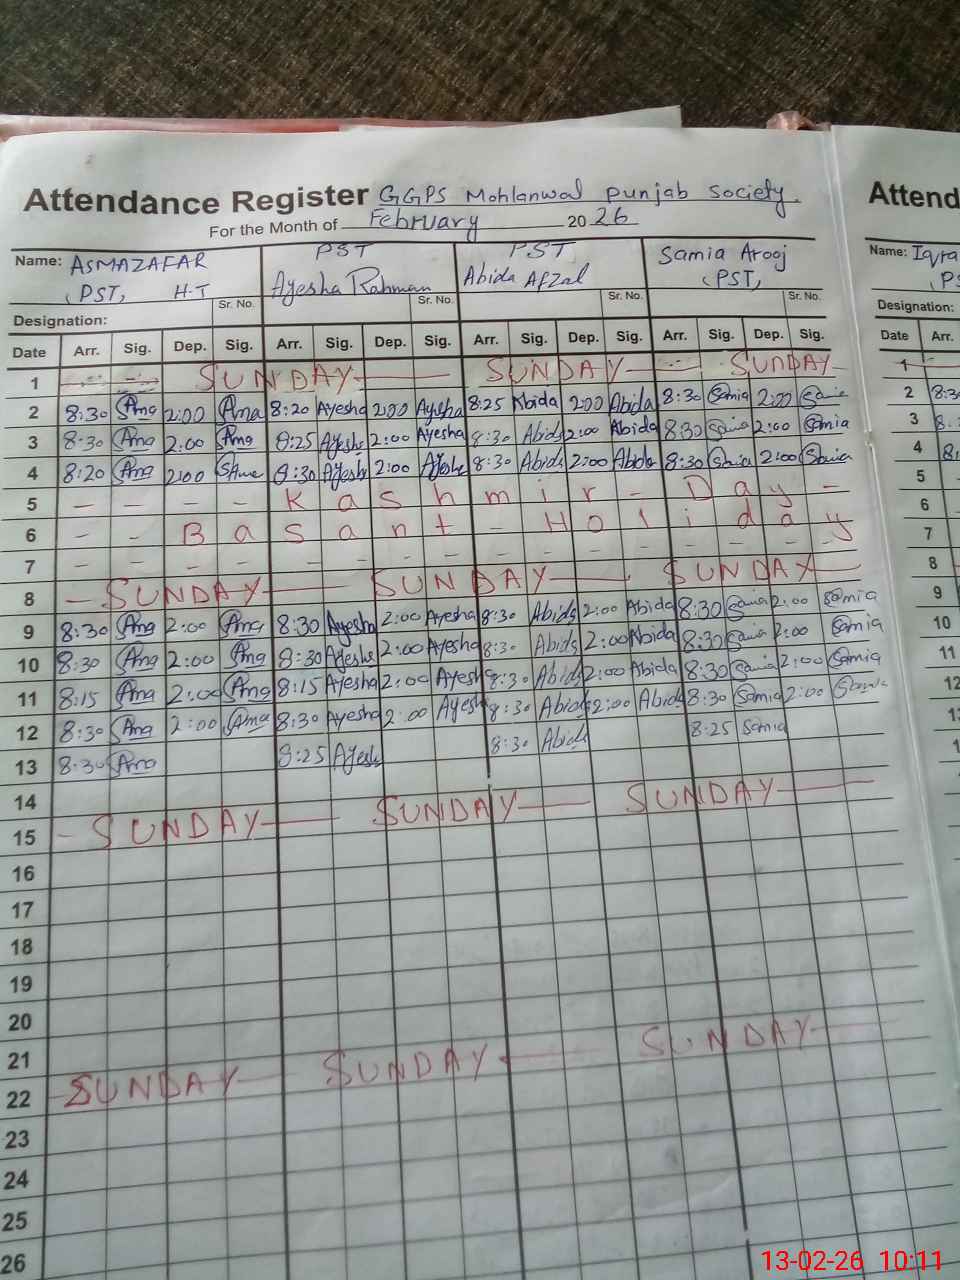 Attendance Register GGPS Mohlanwal Punjab Society.
For the Month of February 2026
Name: ASMAZAFAR PST Ayesha Rahman PST Abida Afzal Samia Arooj
(PST, H-T (PST,
Sr. No. Sr. No. Sr. No. Sr. No.
Designation:
Date Arr. Sig. Dep. Sig. Arr. Sig. Dep. Sig. Arr. Sig. Dep. Sig. Arr. Sig. Dep. Sig.
1 SUNDAY SUNDAY SUNDAY
2 8:30 Ama 2:00 Ama 8:20 Ayesha 2:00 Ayesha 8:25 Abida 2:00 Abida 8:30 Samia 2:00 Samia
3 8:30 Ama 2:00 Ama 8:25 Ayesha 2:00 Ayesha 8:30 Abida 2:00 Abida 8:30 Samia 2:00 Samia
4 8:20 Ama 2:00 8:30 Ayesha 2:00 Ayesha 8:30 Abida 2:00 Abida 8:30 Samia 2:00 Samia
5 - - - - Kashmir - Day -
6 - - Basant - Holiday
7 - - - - - - - - - - - - - -
8 - SUNDAY SUNDAY SUNDAY
9 8:30 Ama 2:00 Ama 8:30 Ayesha 2:00 Ayesha 8:30 Abida 2:00 Abida 8:30 Samia 2:00 Samia
10 8:30 Ama 2:00 Ama 8:30 Ayesha 2:00 Ayesha 8:30 Abida 2:00 Abida 8:30 Samia 2:00 Samia
11 8:15 Ama 2:00 Ama 8:15 Ayesha 2:00 Ayesha 8:30 Abida 2:00 Abida 8:30 Samia 2:00 Samia
12 8:30 Ama 2:00 Ama 8:30 Ayesha 2:00 Ayesha 8:30 Abida 2:00 Abida 8:30 Samia 2:00 Samia
13 8:30 Ama 8:25 Ayesha 8:30 Abida 8:25 Samia
14
15 - SUNDAY SUNDAY SUNDAY
16
17
18
19
20
21
22 SUNDAY SUNDAY SUNDAY
23
24
25
26
Attend
Name: Iqra
PS
Designation:
Date Arr.
1
2 8:3
3 8:
4 8:
5
6
7
8
9
10
11
12
13-02-26 10:11